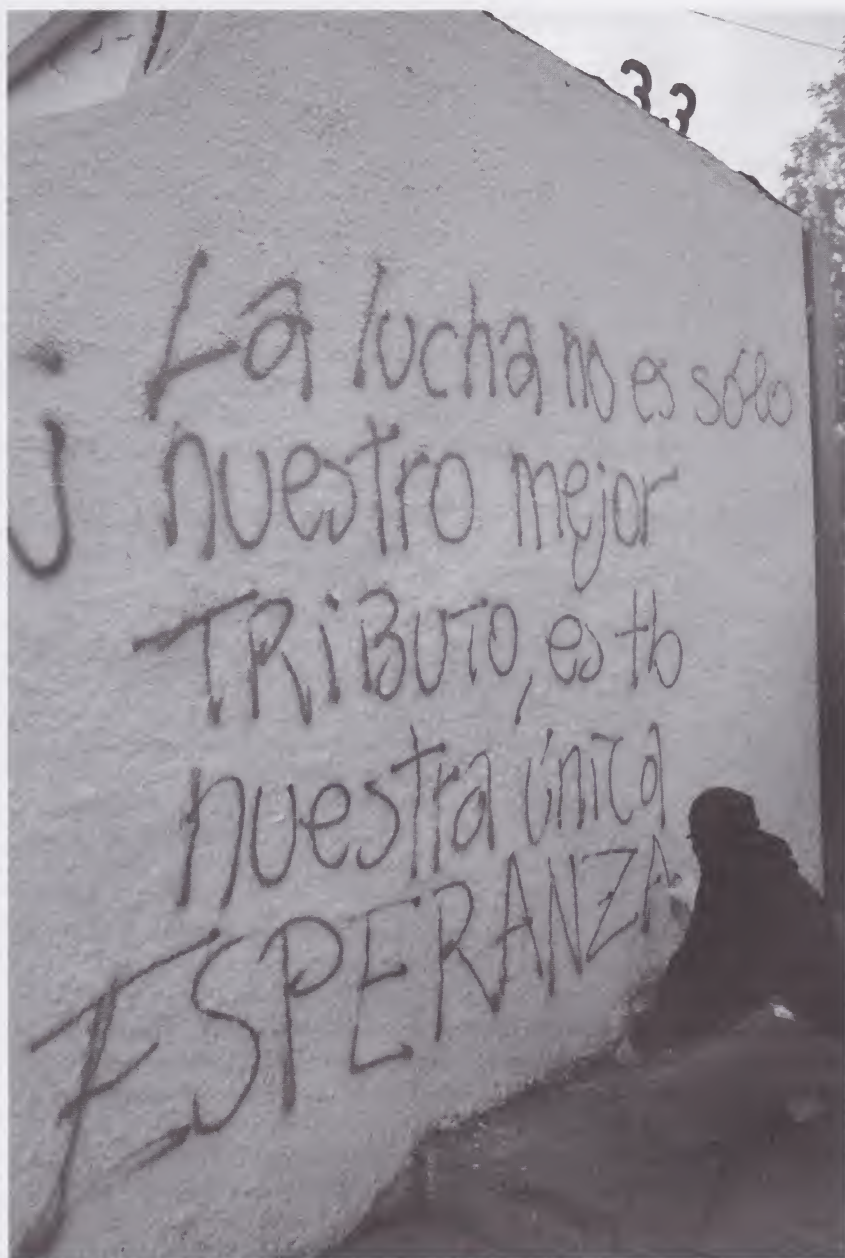 33
¡La lucha no es sólo
nuestro mejor
TRiBUTO, es tb
nuestra única
ESPERANZA